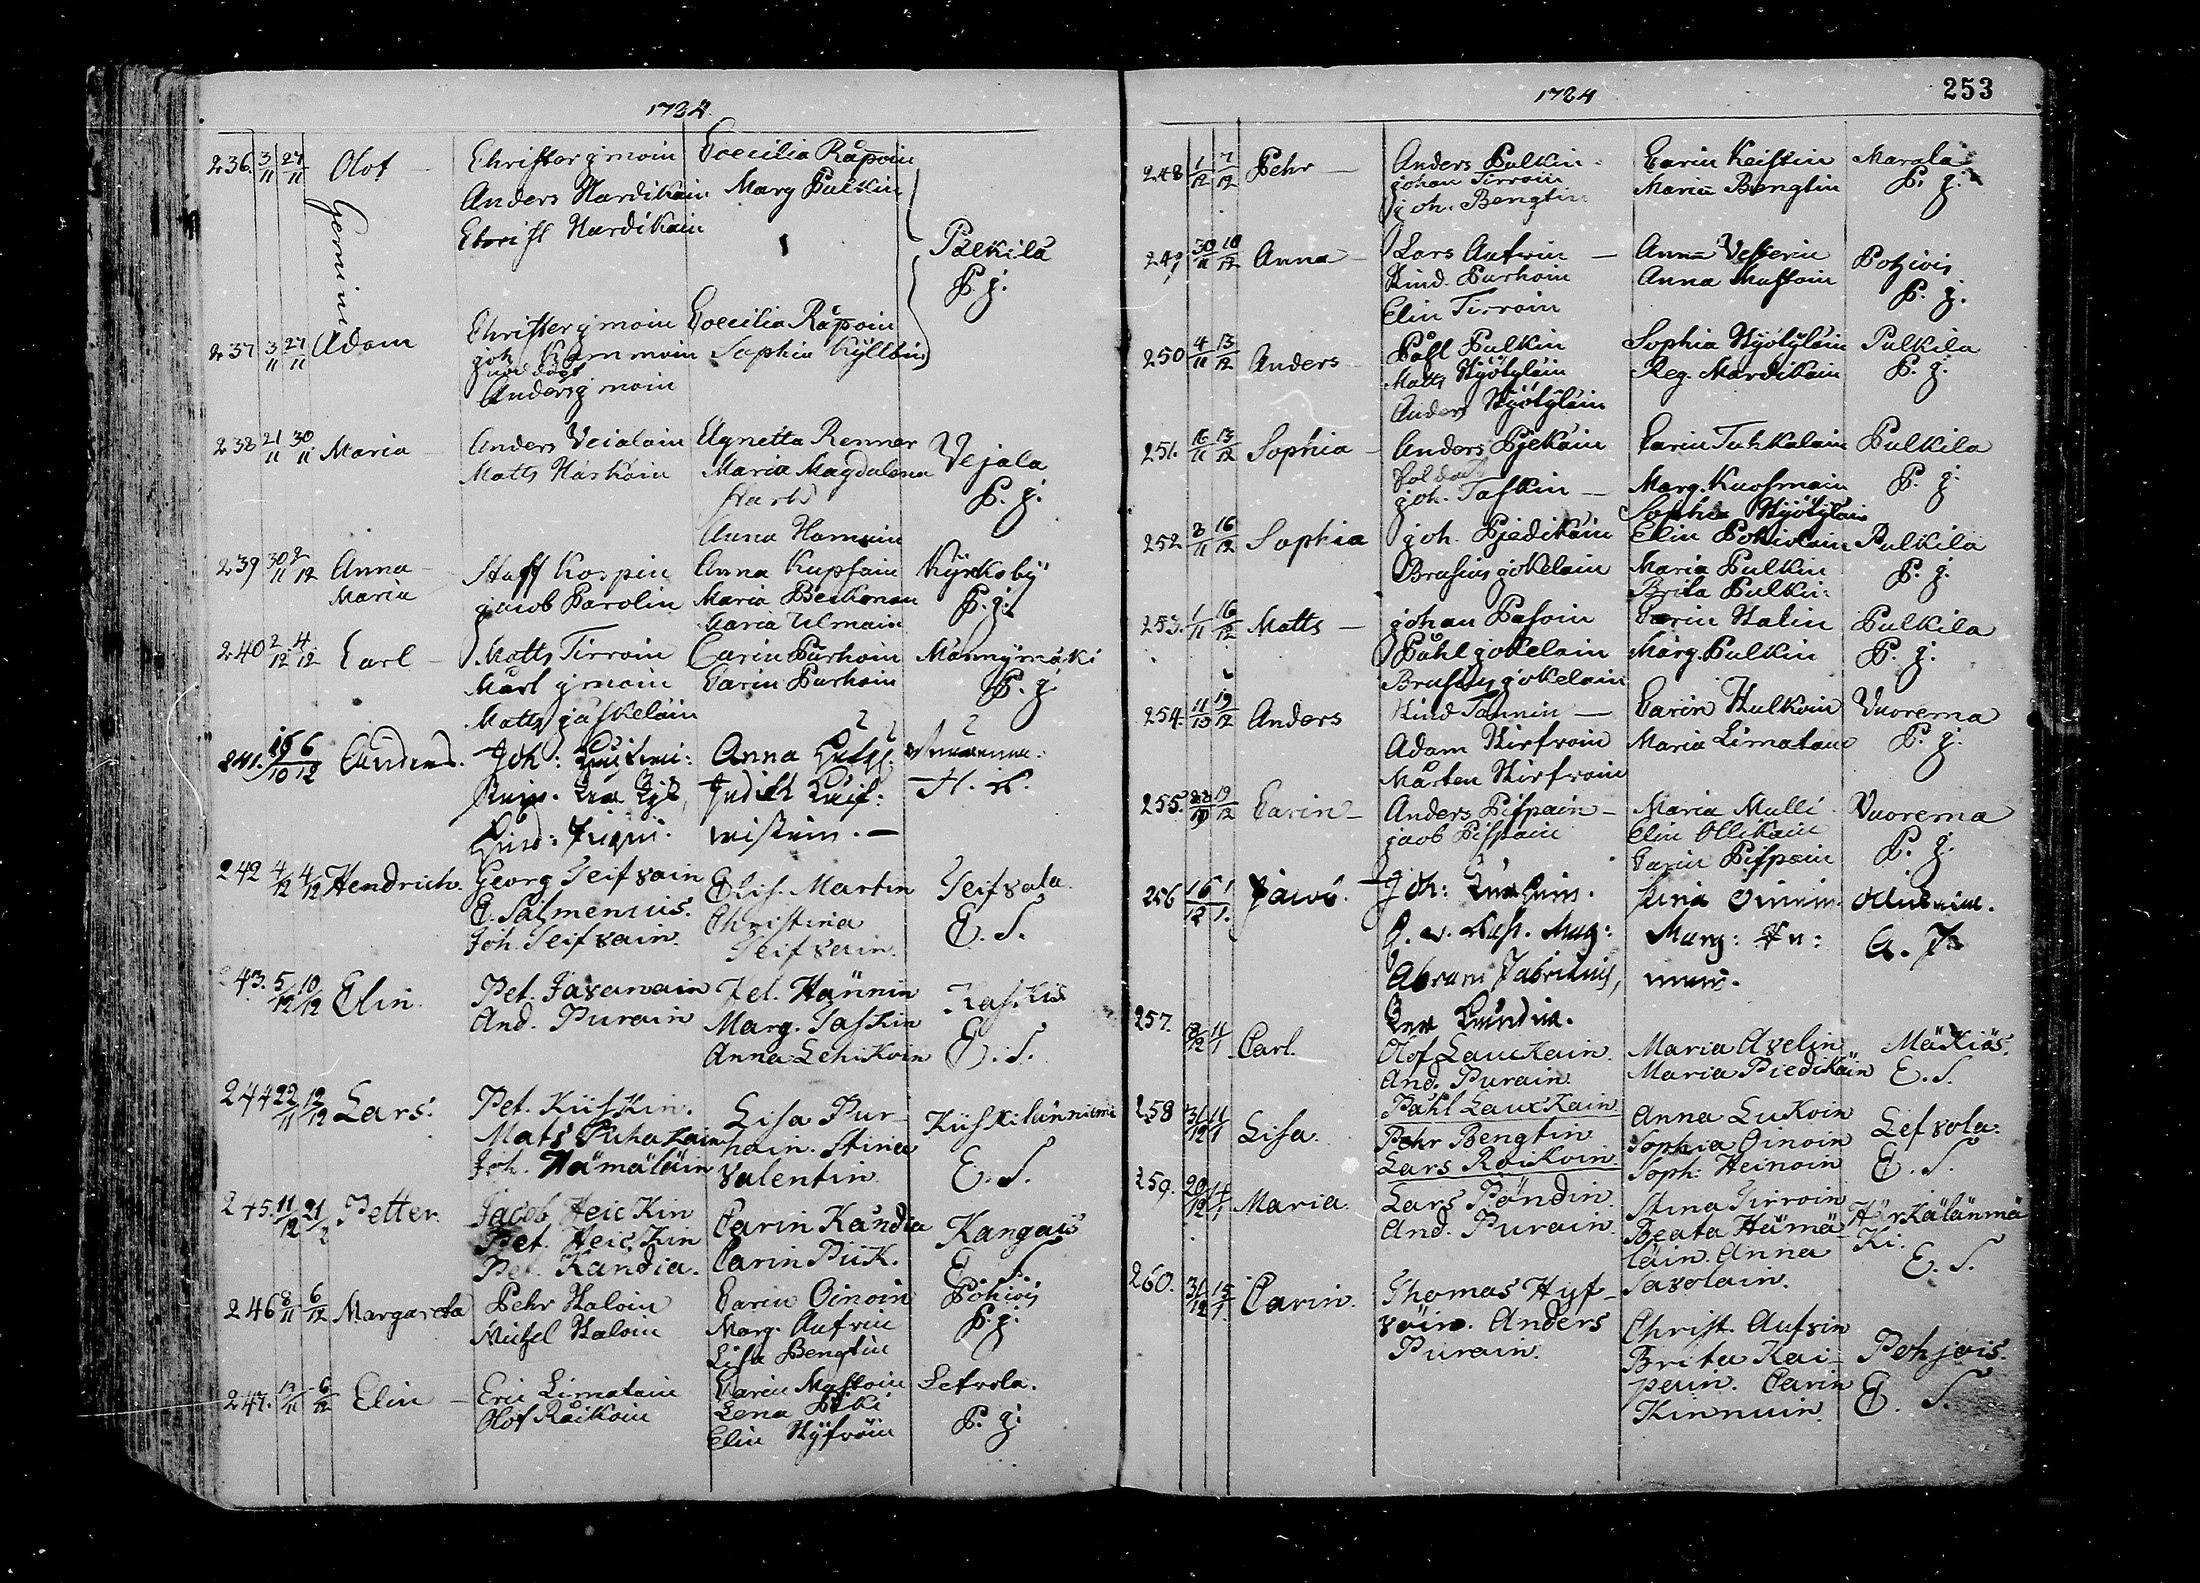 1724.
236. 3/11 27/11 Olof — Christer jmoin Coecilia Råpoin
Anders Hardikain Marg Pulkin
Christ Hardikain
Gemini
Palkila
P. g.
237 3/11 27/11 Adam Christer jmoin Coecilia Råpoin
joh Kammoin Sophia Kyllbin
Anders jmoin
238 21/11 30/11 Maria — Anders Veialain Agnetta Renner Vejala
Matts Harkoin Maria Magdalena P. g.
Stark
Anna Hamain
239 30/11 2/12 Anna — Staff Kospin Anna Kupsain Kyrkoby
Maria jacob Parolin Maria Beckonen P. g.
Maria Ulmain
240 2/12 4/12 Carl — Matts Tirroin Carin Purhoin Männymäki
Mårt jmoin Carin Purhoin P. g.
Matts jäskeläin
241. 15/10 6/12 Anders. Joh: Anna
Judith
Hind:
242 4/12 4/12 Hendrich. Georg Seifvain Elis. Martin Seifvala.
E. Salmenius. Christina E. S.
Joh. Seifvain. Seifvain.
243. 5/12 10/12 Elin. Pet. Javanain Hel. Hännin
And. Purain Marg. Taskin E. S.
Anna Lehikoin
244 22/11 12/12 Lars. Pet. Kiiskin. Lisa Pur- Kiiskilänniemi
Mats Puhakain hain. Stina E. S.
Joh. Hämäläin Valentin.
245. 11/12 21/2 Petter. Jacob Heickin Carin Kandia Kangais
Pet. Heickin Carin Piik. E. S.
Pet. Kandia.
246 8/11 6/12 Margareta Pehr Haloin Carin Oinoin Pohiois
Michel Haloin Marg. Aufvin P. g.
Lisa Bengtin
247. 13/11 6/12 Elin — Eric Limatain Carin Mustoin Lefvola.
Olof Räikoin Lena Piki P. g.
Elin Hyfvöin
1724
253
248 1/12 7/12 Pehr — Anders Pulkin Carin Keistin Marala
johan Tirroin Maria Bengtin P. g.
joh. Bengtin
249 30/11 10/12 Anna — Lars Aufvin — Anna Vesterin Pohiois
Hind. Purhoin Anna Mustoin P. g.
Elin Tirroin
250 4/11 13/12 Anders — Påhl Pulkin Sophia Hyötyläin Pulkila
Matts Hyötyläin Reg. Mardikain P. g.
Anders Hyötyläin
251. 16/11 13/12 Sophia — Anders Pjekäin Carin Tuhkalain Pulkila
Soldat Marg. Kuosmain P. g.
joh. Taskin — Sophia Hyötyläin
252 8/11 16/12 Sophia joh. Pjedikäin Elin Pohiolain Pulkila
Brusius jokelain Maria Pulkin P. g.
Brita Pulkin
253. 1/11 16/12 Matts — johan Pasoin Carin Halin Pulkila
Påhl jokelain Marg. Pulkin P. g.
Brusius jokelain
254. 11/10 19/12 Anders Hind Tannin — Carin Hulkoin Vuorema
Adam Hirfvoin Maria Limatain P. g.
Mårten Hirfvoin
255. 19/12 Carin — Anders Pispain — Maria Mulli Vuorema
jacob Pispain Elin Ollikain P. g.
Carin Pispain
256 16/12 1/1. Jacob. Joh:
Marg:
Abram Fabritius,
257. 8/12 11/1 Carl. Olof Lauckain. Maria Avelin Mäkiös.
And. Purain. Maria Piedikäin E. S.
Påhl Lauckain
258 31/12 11/1 Lisa. Pehr Bengtin Anna Lukoin Lefvola.
Lars Räikoin. Sophia Oinoin E. S.
Soph. Heinoin
259. 20/12 14/1 Maria. Lars Pöndin. Stina Tirroin Härkälänmä
And. Purain. Beata Hämä- ki.
läin. Anna E. S.
Savolain.
260. 31/12 15/1. Carin. Thomas Hyf-
vöin. Anders Christ. Aufvin
Purain. Brita Kai- Pohjois.
pain. Carin E. S.
Kinnuin.